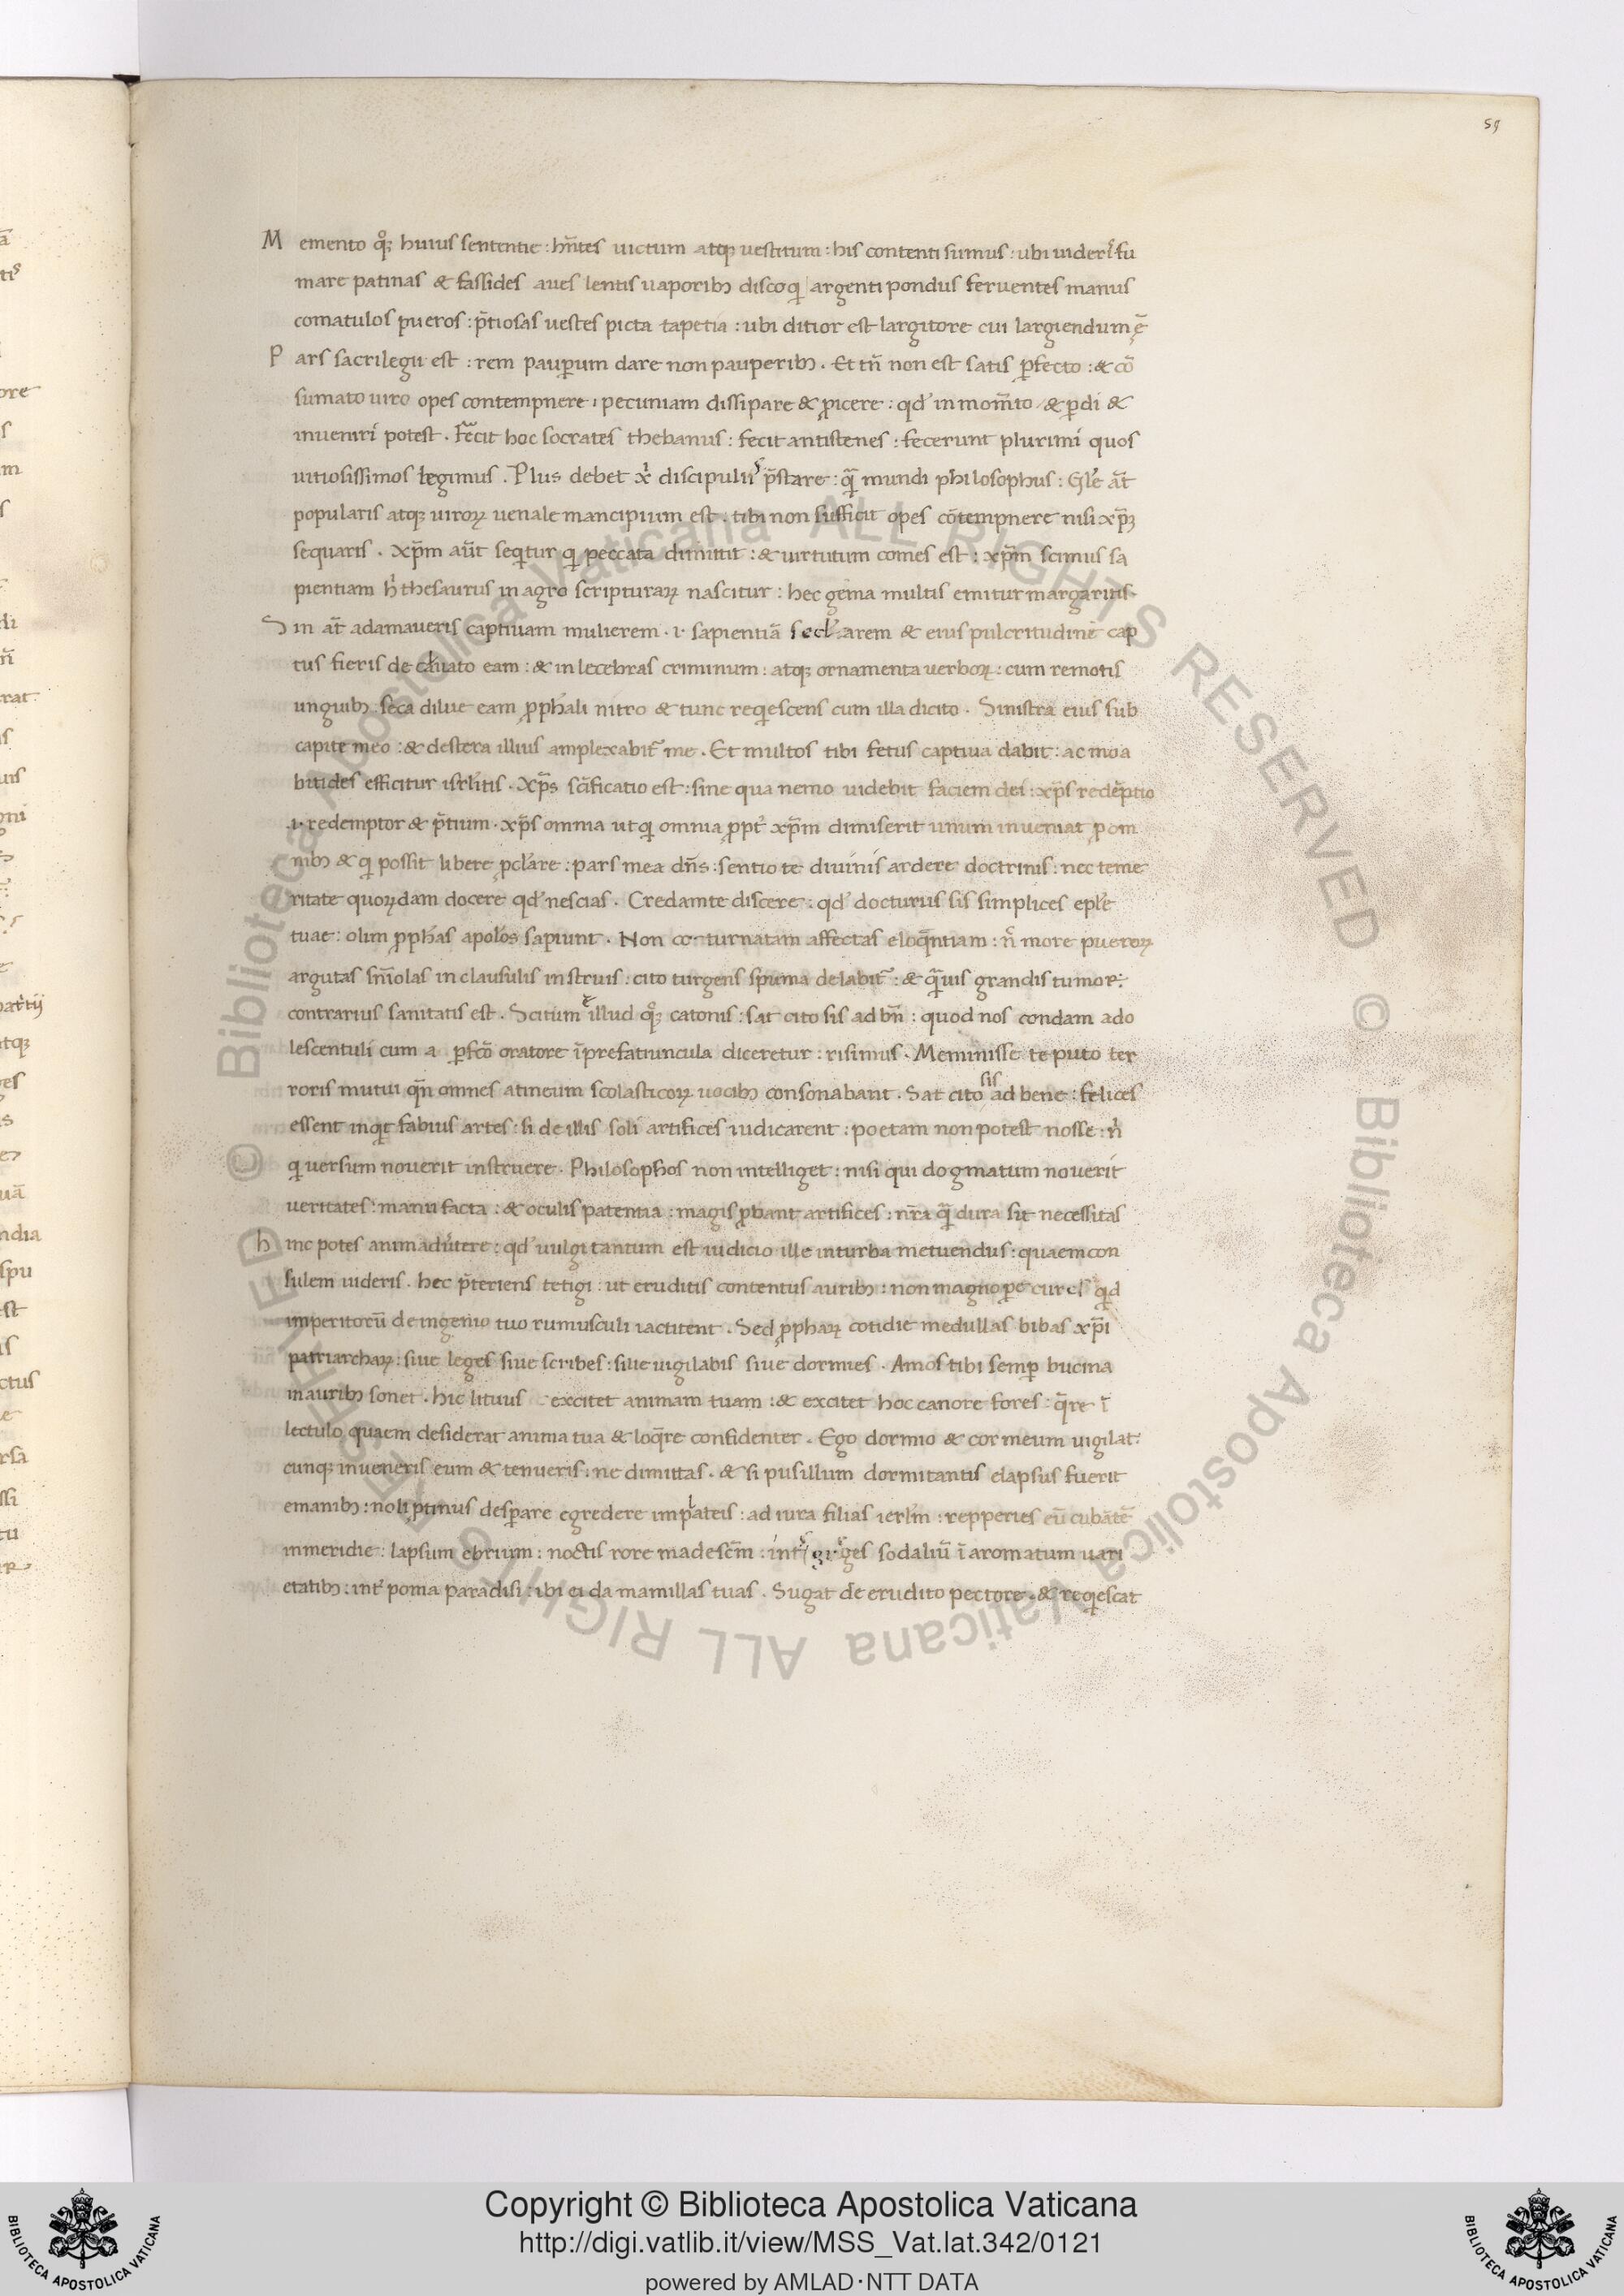 59
M emento qȝ huius sententie : hñtes uictum atqȝ uestitum : his contenti sumus : ubi uideris fu
mare patinas & fassides aues lentis uaporibȝ discoqi argenti pondus feruentes manus
comatulos pueros : p̃tiosas uestes picta tapetia : ubi ditior est largitore cui largiendum ẽ
P ars sacrilegii est : rem paup̱um dare non pauperibȝ . Et tñ non est satis p̱fecto : & cõ
sumato uiro opes contempnere : pecuniam dissipare & ꝓicere : qd' in mom̃to & p̱di &
inueniri potest . Fecit hoc socrates thebanus : fecit antistenes : fecerunt plurimi quos
uitiosissimos legimus . Plus debet xp̃i discipulus p̃stare : quã mundi philosophus : Glẽ aĩt
popularis atqȝ uiroꝝ uenale mancipium est . tibi non sufficit opes cõtempnere nisi xp̃m
sequaris . xp̃m aũt seqitur qi peccata dimittit : & uirtutum comes est : xp̃m scimus sa
pientiam h' thesaurus in agro scripturaꝝ nascitur : hec gẽma multis emitur margaritis
S in aũt adamaueris captiuam mulierem . i . sapientiã seclarem & eius pulcritudinẽ cap
tus fieris decluato eam : & inlecebras criminum : atqȝ ornamenta uerboꝝ : cum remotis
unguibȝ seca dilue eam ꝓphali nitro & tunc reqiescens cum illa dicito . Sinistra eius sub
capite meo : & destera illius amplexabit̃ me . Et multos tibi fetus captiua dabit : ac moa
bitides efficitur isrlitis . Xp̃s scĩficatio est : sine qua nemo uidebit faciem dei : xp̃s redẽptio
.i. redemptor & p̃tium . xp̃s omnia ut qi omnia ꝓpt' xp̃m dimiserit unum inueniat ꝓ om
nibȝ & qi possit libere ꝓclare : pars mea dñs : sentio te diuinis ardere doctrinis : nec teme
ritate quoꝝdam docere qd' nescias . Credam te discere : qd' docturus sis simplices eplẽ
tuae : olim ꝓphas apolos sapiunt . Non corturnatam affectas eloqntiam : n' more pueroꝝ
argutas sñiolas in clausulis instruis : cito turgens spuma delabit̃ : & quãuis grandis tumor :
contrarius sanitatis est . Scitum ẽ illud qȝ catonis : sat cito sis ad bñ : quod nos condam ado
lescentuli cum a p̱fcõ oratore ĩ prefatiuncula diceretur : risimus . Meminisse te puto ter
roris mutui qñ omnes atineum scolasticoꝝ uocibȝ consonabant . Sat cito sis ad bene : felices
essent inqit fabius artes : si de illis soli artifices iudicarent : poetam non potest nosse : n'
qi uersum nouerit instruere . Philosophos non intelliget : nisi qui dogmatum nouerit
ueritates : manu facta : & oculis patentia : magis ꝓbant artifices : nr̃a quã dura sit necessitas
h inc potes animaduertere : qd' uulgi tantum est iudicio ille inturba metuendus : quaem con
sulem uideris . hec p̃teriens tetigi : ut eruditis contentus auribȝ : non magnop̱e cures qid
imperitorũ de ingenio tuo rumusculi iactitent . Sed ꝓphaꝝ cotidie medullas bibas xp̃i
patriarchaꝝ : siue leges siue scribes : siue uigilabis siue dormies . Amos tibi semp̱ bucina
inauribȝ sonet . hic lituus excitet animam tuam : & excitet hoc canore fores : q̃re ĩ
lectulo quaem desiderat anima tua & loq̃re confidenter . Ego dormio & cor meum uigilat :
cunqȝ inueneris eum & tenueris : ne dimittas . & si pusillum dormitantis elapsus fuerit
emanibȝ : noli ꝓtinus desp̱are egredere imp̱ateis : ad iura filias ierlm : repperies eũ cubãtẽ
inmeridie : lapsum ebrium : noctis rore madescm̃ : int' greges sodaliũ ĩ aromatum uari
etatibȝ : int' poma paradisi : ibi ei da mamillas tuas . Sugat de erudito pectore . & reqiescat
© Biblioteca Apostolica Vaticana ALL RIGHTS RESERVED © Biblioteca Apostolica Vaticana ALL RIGHTS RESERVED
BIBLIOTECA APOSTOLICA VATICANA
Copyright © Biblioteca Apostolica Vaticana
http://digi.vatlib.it/view/MSS_Vat.lat.342/0121
powered by AMLAD·NTT DATA
BIBLIOTECA APOSTOLICA VATICANA